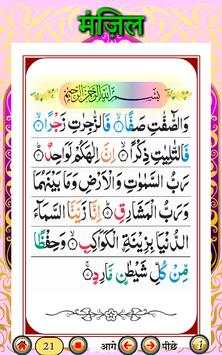 मंज़िल
بِسْمِ اللّٰهِ الرَّحْمٰنِ الرَّحِيْمِ
وَالصّٰٓفّٰتِ صَفًّاۙ فَالزّٰجِرٰتِ زَجْرًاۙ
فَالتّٰلِيٰتِ ذِكْرًاۙ اِنَّ اِلٰهَكُمْ لَوَاحِدٌۗ
رَبُّ السَّمٰوٰتِ وَالْاَرْضِ وَمَا بَيْنَهُمَا
وَ رَبُّ الْمَشَارِقِۗ اِنَّا زَيَّنَّا السَّمَآءَ
الدُّنْيَا بِزِيْنَةِ ِۨالْكَوَاكِبِۙ وَحِفْظًا
مِّنْ كُلِّ شَيْطٰنٍ مَّارِدٍۚ
21 आगे पीछे